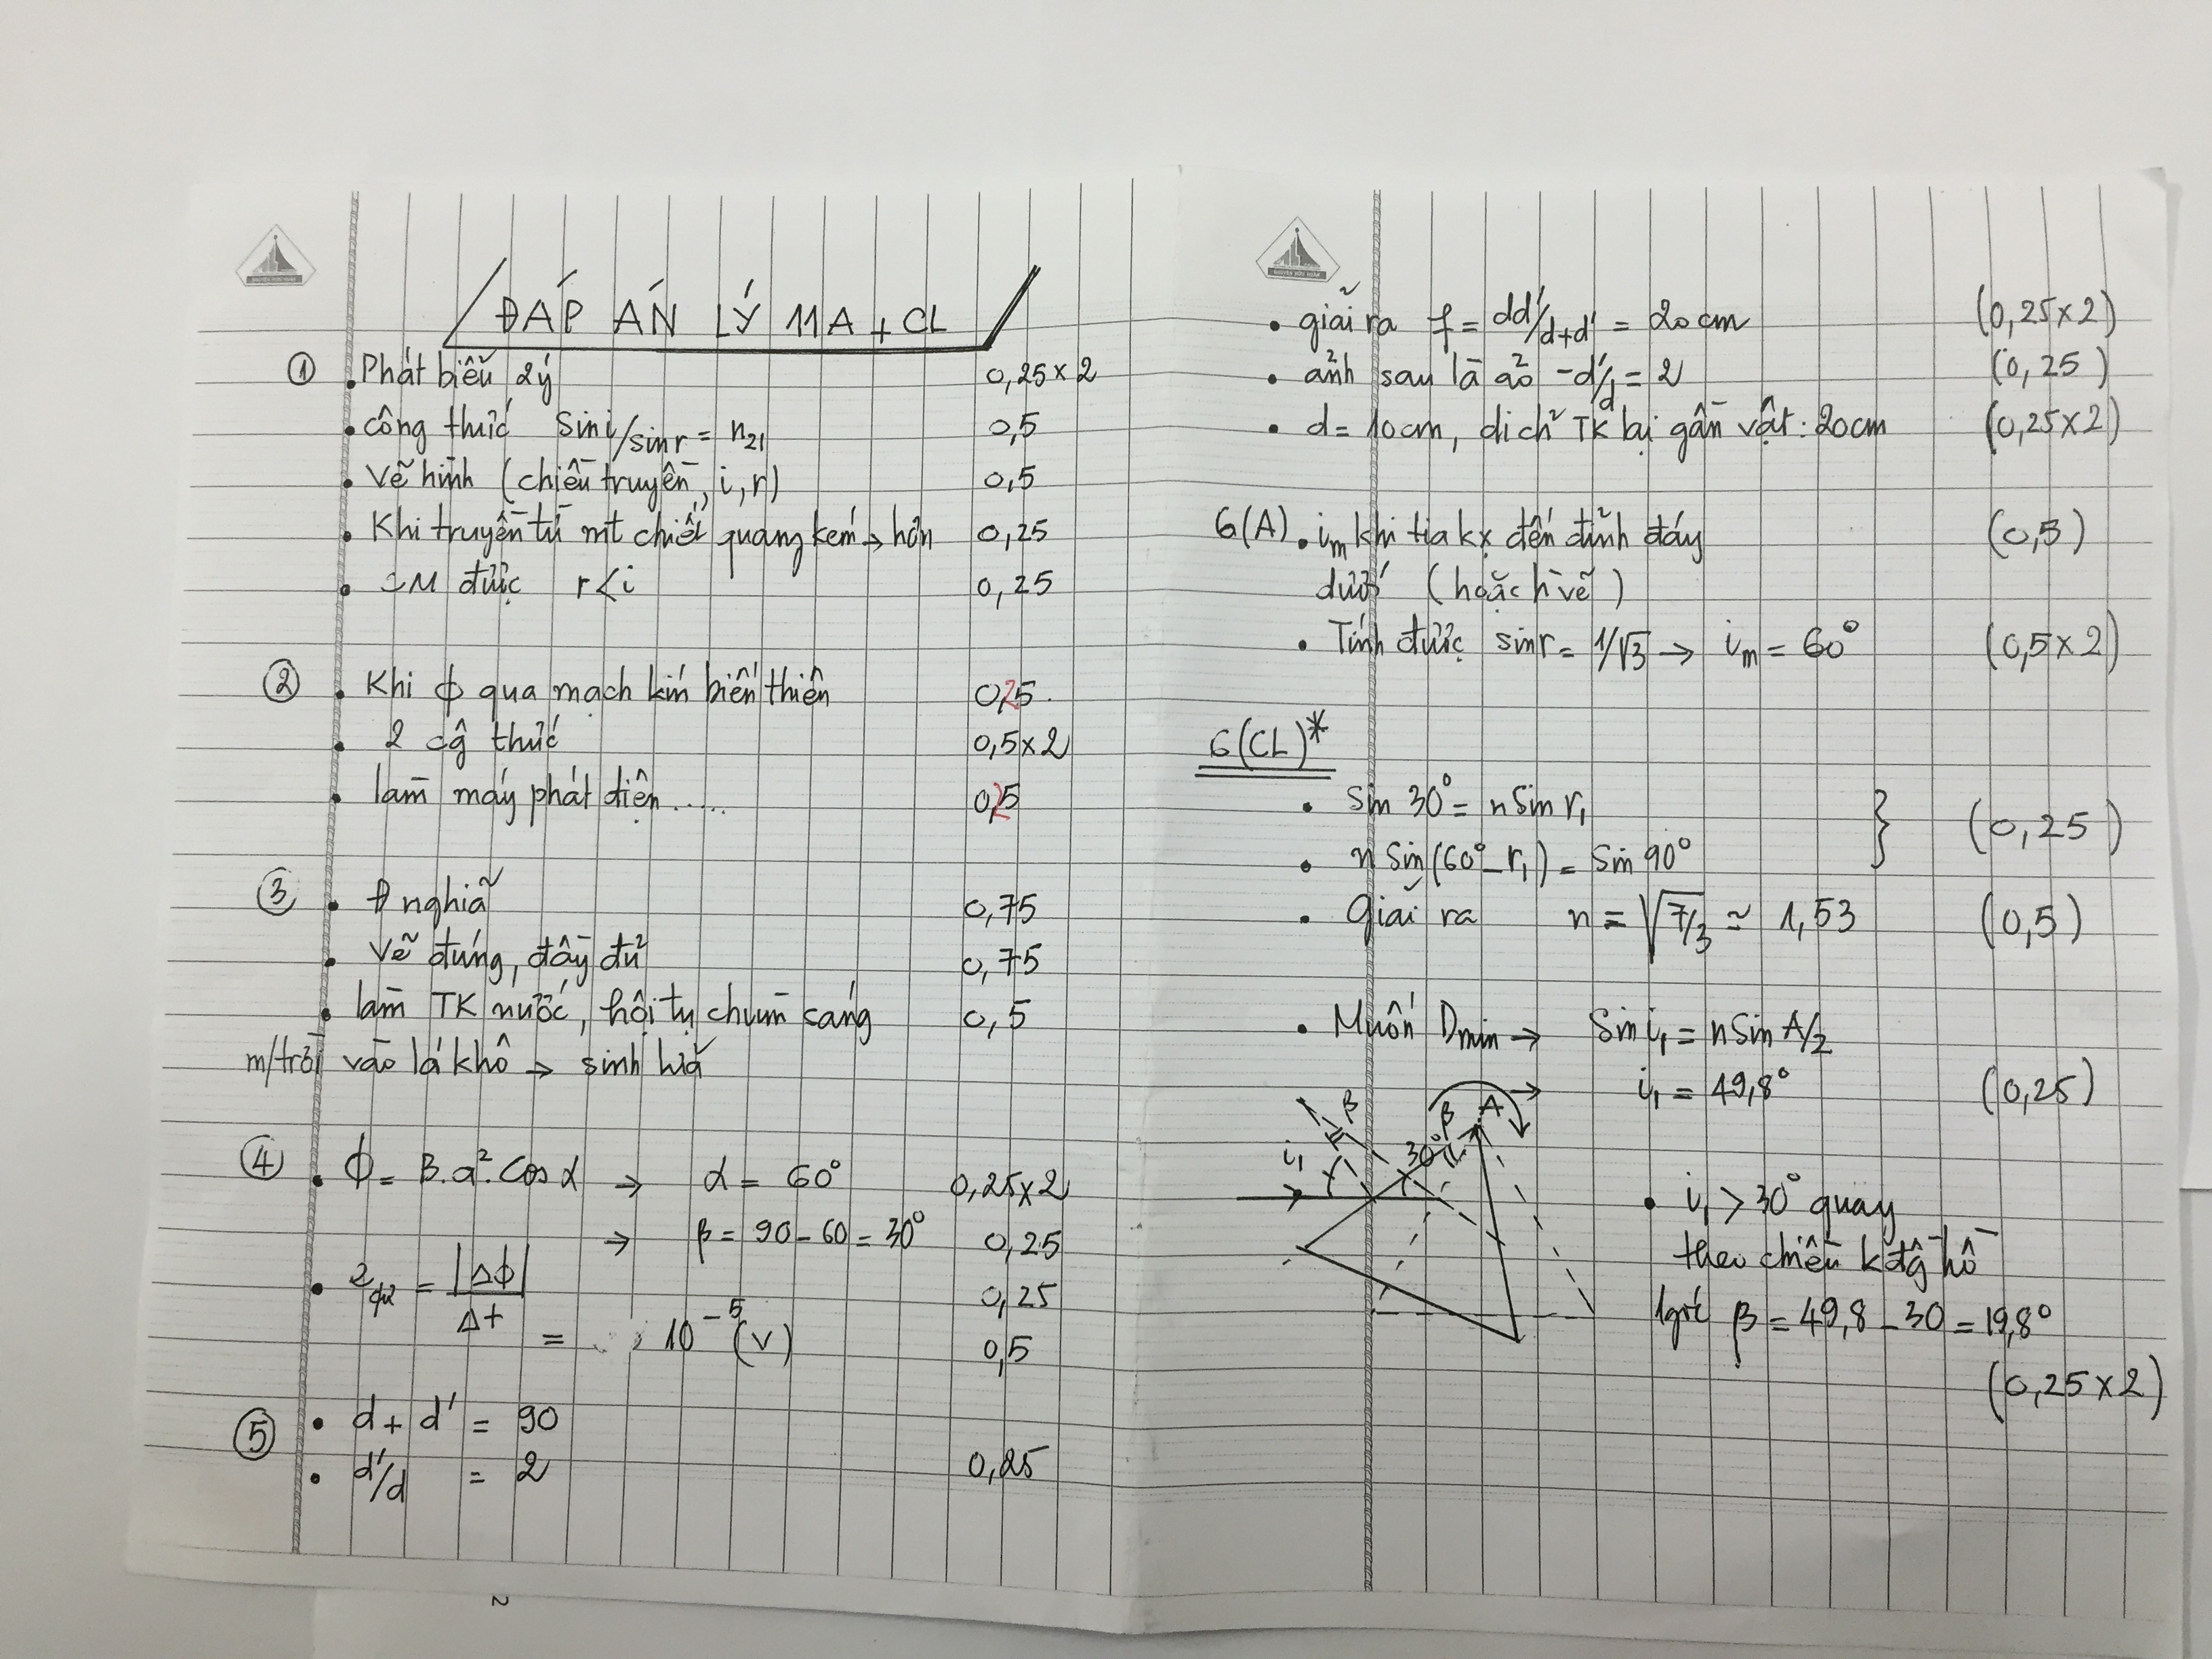 ĐÁP ÁN LÝ 11A + CL
① • Phát biểu 2 ý 0,25×2
• công thức sini/sinr = n21 0,5
• Vẽ hình (chiều truyền, i, r) 0,5
• Khi truyền từ mt chiết quang kém → hơn 0,25
• CM được r < i 0,25
② • Khi ϕ qua mạch kín biến thiên 0,25
• 2 cg thức 0,5×2
• làm máy phát điện..... 0,25
③ • Đ nghĩa 0,75
• Vẽ đúng, đầy đủ 0,75
• làm TK nước, hội tụ chùm sáng 0,5
m/trời vào lá khô → sinh lửa
④ • ϕ = B.a². Cos α → α = 60° 0,25×2
→ β = 90 - 60 = 30° 0,25
• = |Δϕ|/Δt 0,25
= 10⁻⁵ (V) 0,5
⑤ • d + d' = 90
• d'/d = 2 0,25
• giải ra f = dd'/d+d' = 20 cm (0,25×2)
• ảnh sau là ảo -d'/d = 2 (0,25)
• d = 10cm, dịch TK lại gần vật: 20cm (0,25×2)
6(A) • im khi tia kx đến đỉnh đáy (0,5)
dưới (hoặc h vẽ)
• Tính được sinr = 1/√3 → im = 60° (0,5×2)
6(CL)*
• Sin 30° = n Sin r₁
• n Sin(60° - r₁) = Sin 90° } (0,25)
• Giải ra n = √7/3 ≃ 1,53 (0,5)
• Muốn Dmin → Sin i₁ = n Sin A/2
→ i₁ = 49,8° (0,25)
β β A
i₁ 30°
• i₁ > 30° quay
theo chiều k đg hồ
1 góc β = 49,8 - 30 = 19,8°
(0,25×2)
2